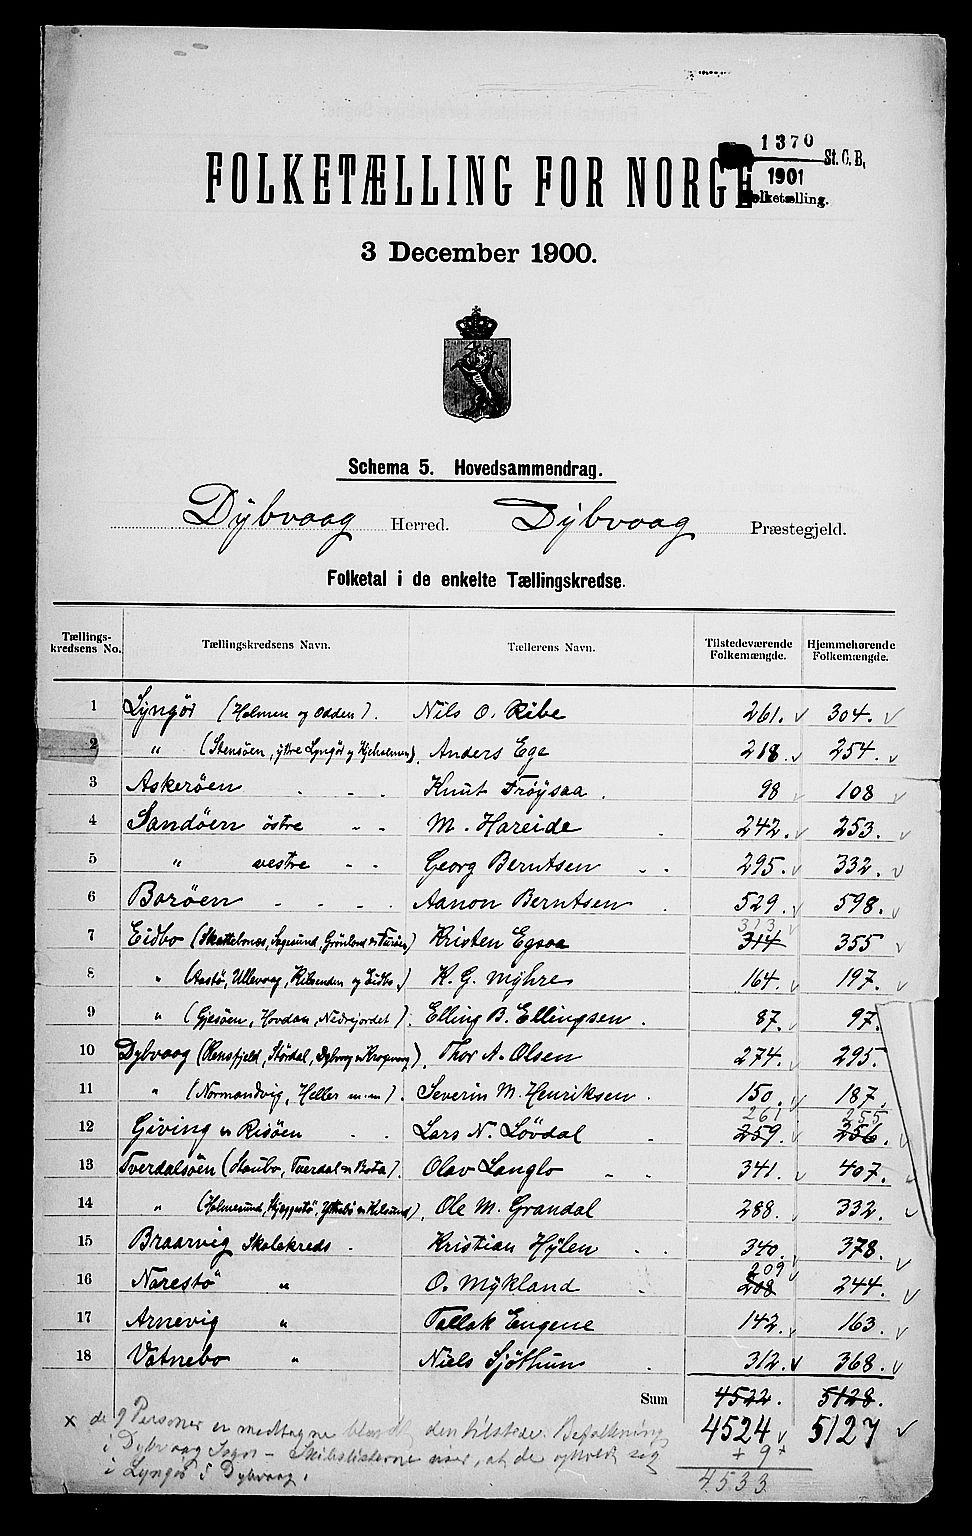 1370
St. C. B.
1901
Folketælling.
FOLKETÆLLING FOR NORGE
3 December 1900.
Schema 5. Hovedsammendrag.
Dybvaag Herred. Dybvaag Præstegjeld.
Folketal i de enkelte Tællingskredse.
Tællings-kredsens No. Tællingskredsens Navn. Tællerens Navn. Tilstedeværende Folkemængde. Hjemmehørende Folkemængde.
1 Lyngör (Holmen og Odden). Nils O. Ribe 261. 304.
2 " (Stensöen, ytre Lyngör og Kjeholmen), Anders Ege 218. 254.
3 Askeröen Knut Fröysaa. 98 108
4 Sandöen östre M. Hareide 242. 253.
5 " vestre Georg Berntsen 295. 332.
6 Boröen Aanon Berntsen 529. 598.
313
7 Eidbo (Skattebonæs, Sagesund, Grönland Kristen Egsaa 314 355
8 " (Aastö, Ullevaag, Kilsenden og Eidbo.) K. G. Myhre 164. 197.
9 " (Gjesöen, Hovdan, Nedrejordet). Elling B. Ellingsen. 87. 97.
10 Dybvaag (Rensfjeld, Stördal, Dybvaag Thor A. Olsen 274. 295.
11 " (Normandvig, Heller m.m). Severin M. Henriksen. 150. 187.
261 255
12 Giving Risöen Lars N. Lövdal 259. 256.
13 Tverdalsöen (Staubo, Tverdal Bota). Olav Langlo 341. 407.
14 " (Holmesund, Kjeggestö, Ole M. Grandal 288. 332.
15 Braarvig Skolekreds. Kristian Hylen 340. 378.
209
16 Narestö " O. Mykland 208 244.
17 Arnevig " Tallak Eugene 142. 163.
18 Vatnebo " Niels Sjöthun 312. 368.
Sum 4522. 5128.
x de 9 Personer er medtagne den tilstedev. Befolkning 4524 5127
i Dybvaag Sogn – Skibslisterne viser, at de opholdt sig + 9 x
i Lyngör i Dybvaag. 4533